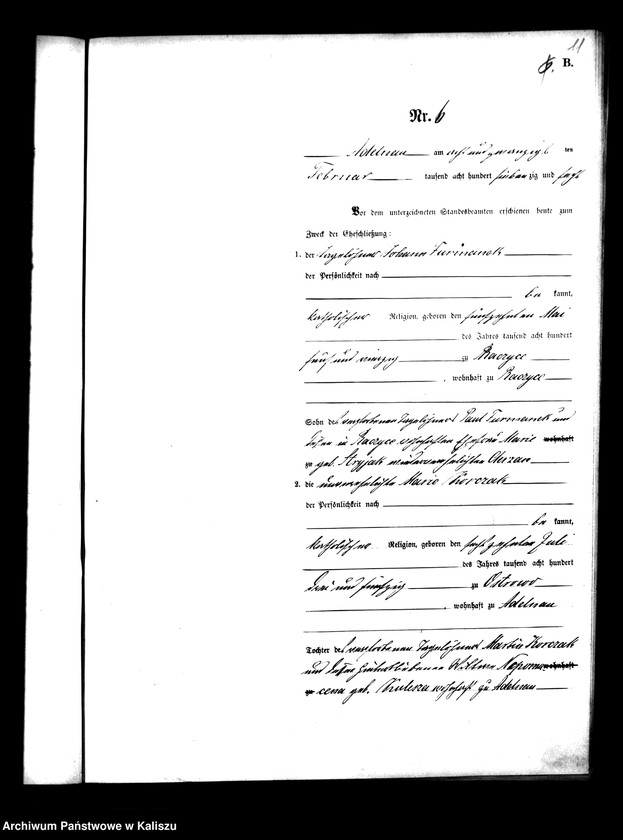 11
B.
Nr. 6
Adelnau am acht und zwanzig ten
Februar tausend acht hundert sieben zig und sechs
Vor dem unterzeichneten Standesbeamten erschienen heute zum
Zweck der Eheschließung:
1. der Tagelöhner Johann Furmanek
der Persönlichkeit nach
be kannt,
katholischer Religion, geboren den fünfzehnten Mai
des Jahres tausend acht hundert
fünf und vierzig zu Raczyce
, wohnhaft zu Raczyce
Sohn des verstorbenen Tagelöhners Paul Furmanek und
dessen in Raczyce wohnhaften Ehefrau Marie wohnhaft
zu geb. Stryjak wiederverehelichten
2. die unverehelichte Marie Korczak
der Persönlichkeit nach
be kannt,
katholischer Religion, geboren den sechszehnten Juli
des Jahres tausend acht hundert
drei und fünfzig zu Ostrowo
, wohnhaft zu Adelnau
Tochter des verstorbenen Tagelöhners Martin Korczak
und dessen hinterbliebenen Wittwe Nepomu wohnhaft
zu cena geb. Kulesza wohnhaft zu Adelnau
Archiwum Państwowe w Kaliszu